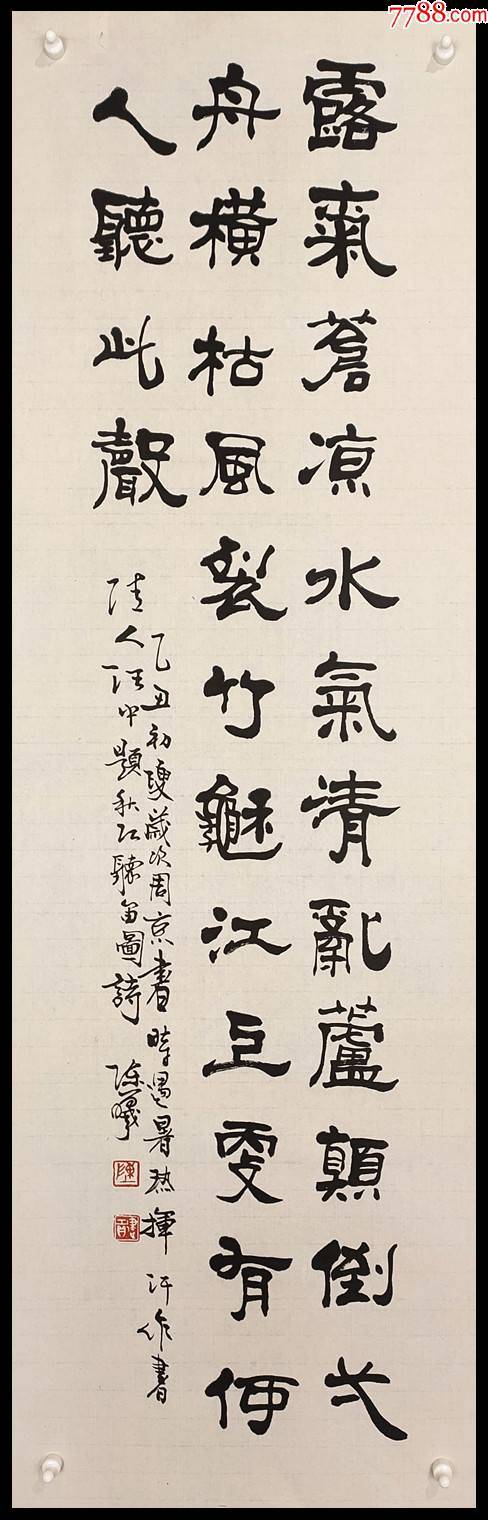 7788.com
露蒼凉水氣清亂蘆顛倒弌
舟橫枯風裂竹龝江上更有何
人聽此聲
乙丑初夏歲次周京書時遇暑熱揮汗作書
清人汪中題秋江聽笛圖詩 陳曦
陳